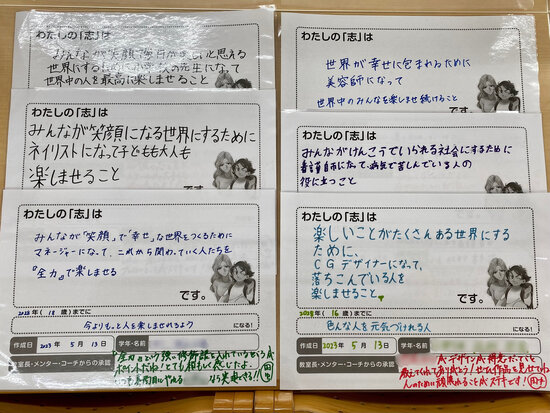 わたしの「志」は
みんなが笑顔で毎日が楽しいと思える
世界にするために の先生になって
世界中の人を最高に楽しませること
わたしの「志」は
みんなが笑顔になる世界にするために
ネイリストになって子どもも大人も
楽しませること
です。
わたしの「志」は
みんなが「笑顔」で"幸せ"な世界をつくるために
マネージャーになって、これから関わっていく人たちを
『全力』で楽しませる
です。
(18歳)までに
今よりもっと人を楽しませれるよう
になる!
作成日 2023年 5月 13日 学年・名前
教室長・メンター・コーチからの承認
わたしの「志」は
世界が幸せに包まれるために
美容師になって
世界中のみんなを楽しませ続けること
わたしの「志」は
みんながけんこうでいられる社会にするために
看護師になって、病気で苦しんでいる人の
役に立つこと
わたしの「志」は
楽しいことがたくさんある世界にする
ために、
CGデザイナーになって、
落ちこんでいる人を
楽しませること
です。
2028年(16歳)までに
色んな人を元気づけれる人
になる!
作成日 2023年 5月 13日 学年・名前
教室長・メンター・コーチからの承認